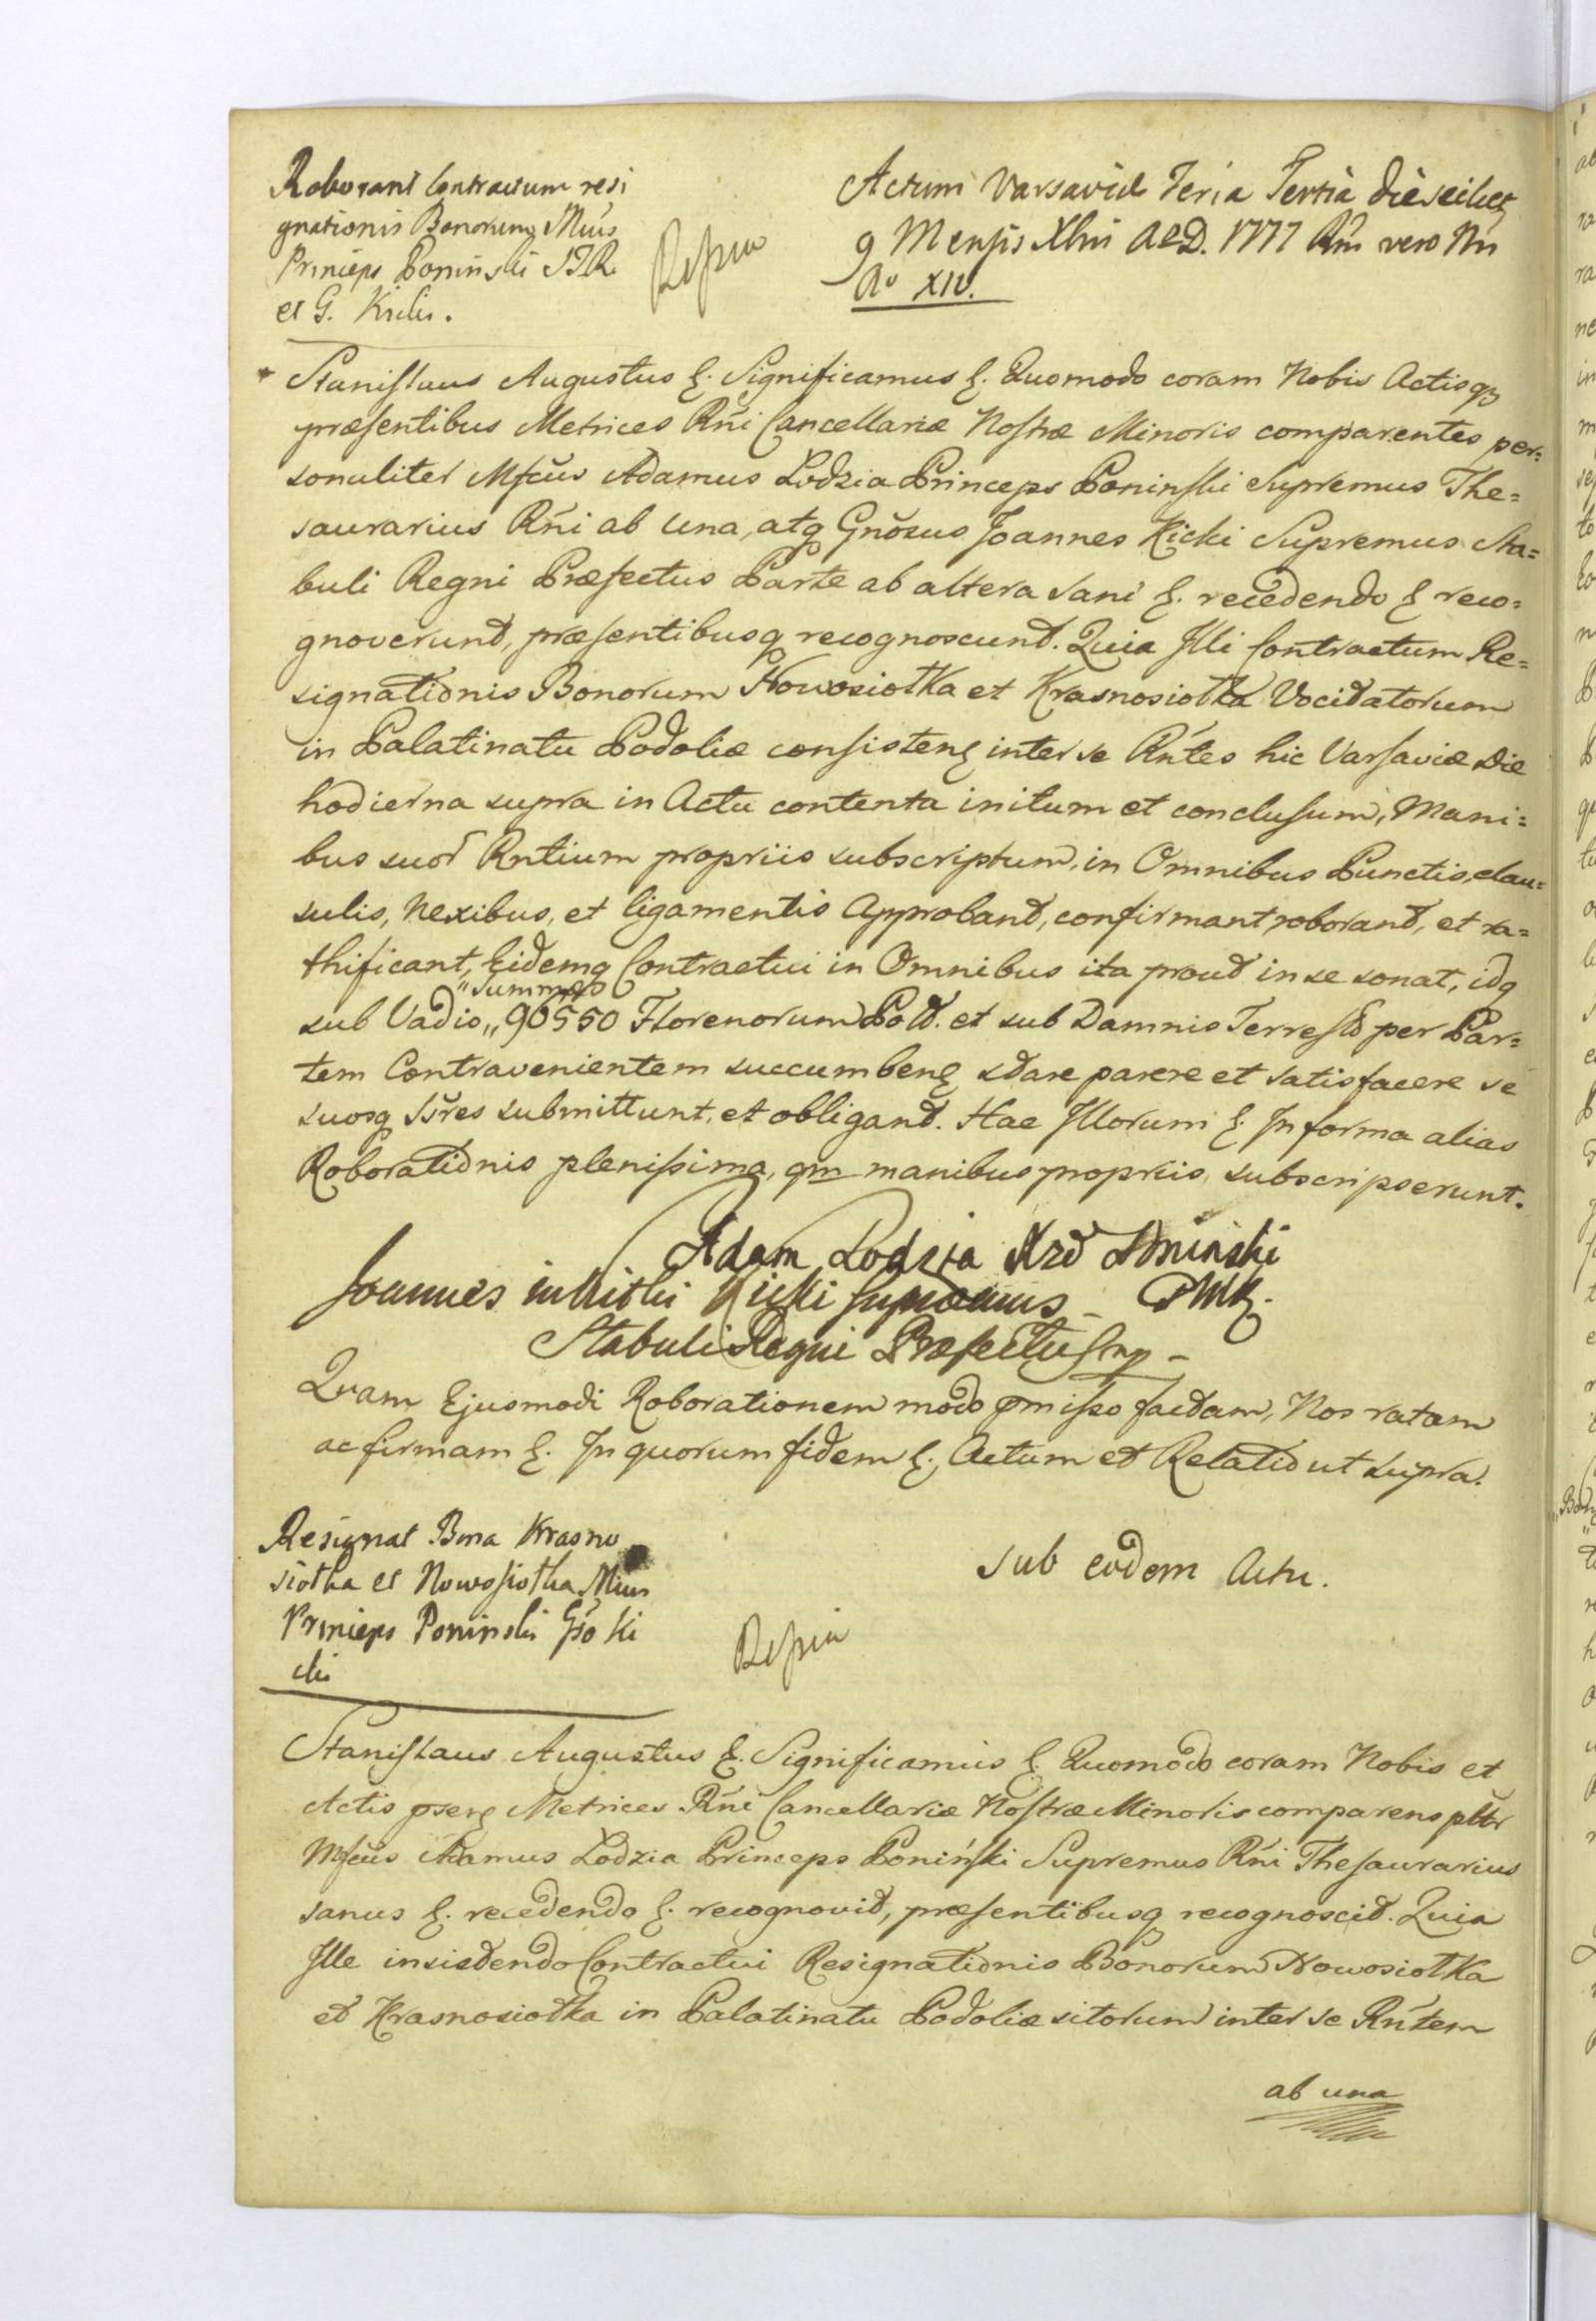 Roborant Contractum resi
gnationis Bonorum Mcus
Princeps Poninski STR
et G. Kicki.
Actum Varsaviæ Feria Tertia die scilicet
9 Mensis Xbri A&D. 1777 Rni vero Nri
Ao XIV.
Stanislaus Augustus &. Significamus &. Quomodo coram Nobis Actisq3
præsentibus Metrices Rñi Cancellariæ Nostræ Minoris comparentes per=
sonaliter Mfcus Adamus Lodzia Princeps Poninski Supremus The=
saurarius Rñi ab una, atq Gnosus Joannes Kicki Supremus Sta=
buli Regni Præfectus Parte ab altera sani &. recedendo & reco=
gnoverunt, præsentibusq recognoscunt. Quia Illi Contractum Re=
signationis Bonorum Nowosiołka et Krasnosiołka Vocitatorum
in Palatinatu Podoliæ consisten& inter se Rntes hic Varsaviæ Die
hodierna supra in Actu contenta initum et conclusum, Mani=
bus suor Rntium propriis subscriptum, in Omnibus Punctis, clau=
sulis, Nexibus, et ligamentis Approbant, confirmant roborant, et ra=
thificant, Eidemq Contractui in Omnibus ita prout in se sonat, idq
"Summæ
sub Vadio „90550 Florenorum Pold. et sub Damnis Terrest per Par=
tem Contravenientem succumben& stare parere et satisfacere se
suosq ssres submittunt, et obligant. Hac Illorum &. In forma alias
Roborationis plenissima, qm manibus propriis subscripserunt.
Adam Lodzia Xżę Poninski
PWK.
Joannes Kicki Supremus
Stabuli Regni Præfectus mp
Quam Ejusmodi Roborationem modo pmisso factam, Nos ratam
ac firmam &. In quorum fidem &. Actum et Relatio ut supra.
Resignat Bona Krasno
siołka et Nowosiołka Mcus
Princeps Poninski Gso Ki
cki
Sub eodem Actu.
Stanislaus Augustus &. Significamus &. Quomodo coram Nobis et
Actis psen& Metrices Rñi Cancellariæ Nostræ Minoris comparens pltr
Mfcus Adamus Lodzia Princeps Poniński Supremus Rñi Thesaurarius
sanus &. recedendo &. recognovit, præsentibusq recognoscit. Quia
Ille insistendo Contractui Resignationis Bonorum Nowosiołka
et Krasnosiołka in Palatinatu Podoliæ sitorum inter se Rntem
ab una